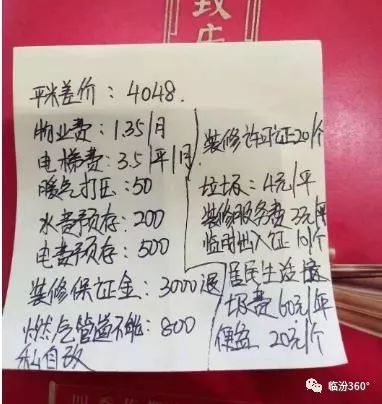 致店
平米差价：4048.
物业费：1.35/月
电梯费：3.5/年/月.
暖气打压：50
水费预存：200
电费预存：500
装修保证金：3000退
燃气管道不能：800
私自改
装修许可证20/个
垃圾：4元/平
装修服务费3元/平
临时出入证10/个
居民生活垃
圾费60元/年
便盆20元/个
临汾360°